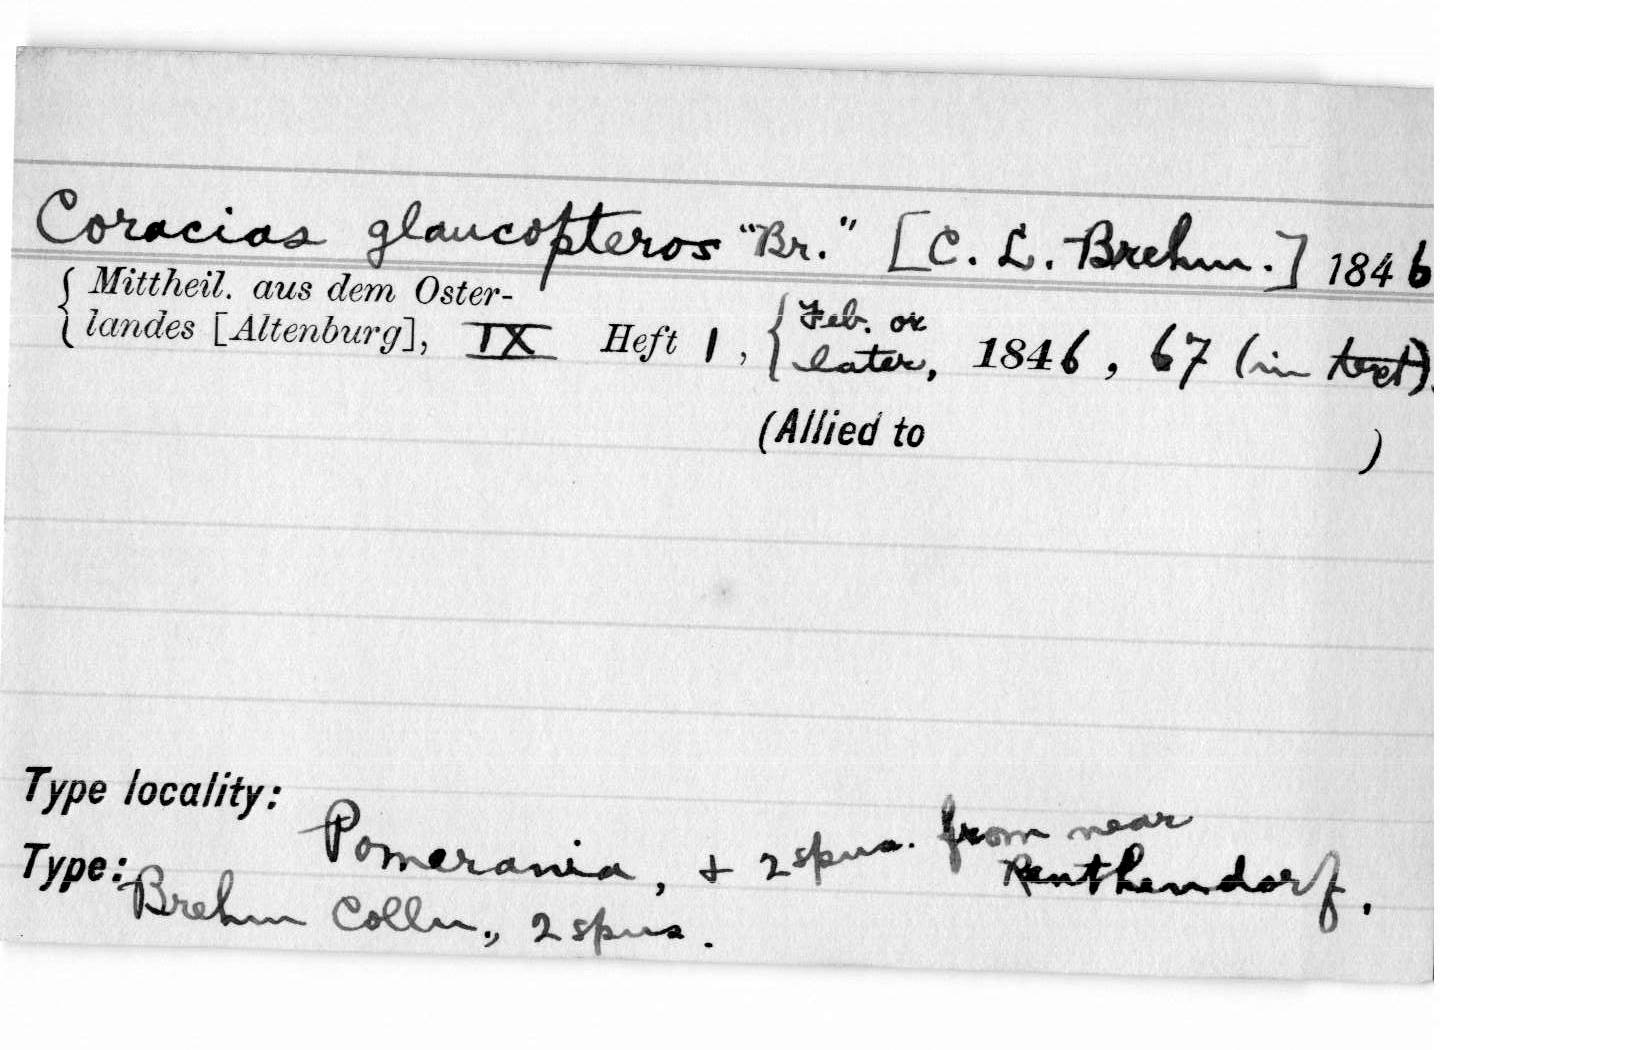 Coracias glaucopteros "Br." [C. L. Brehm.] 1846
Mittheil. aus dem Oster-
landes [Altenburg], IX Heft 1, { Feb. or later, 1846, 67 (in text).
(Allied to )
Type locality:
Pomerania, + 2 spns. from near
Renthendorf.
Type: Brehm Colln., 2 spns.